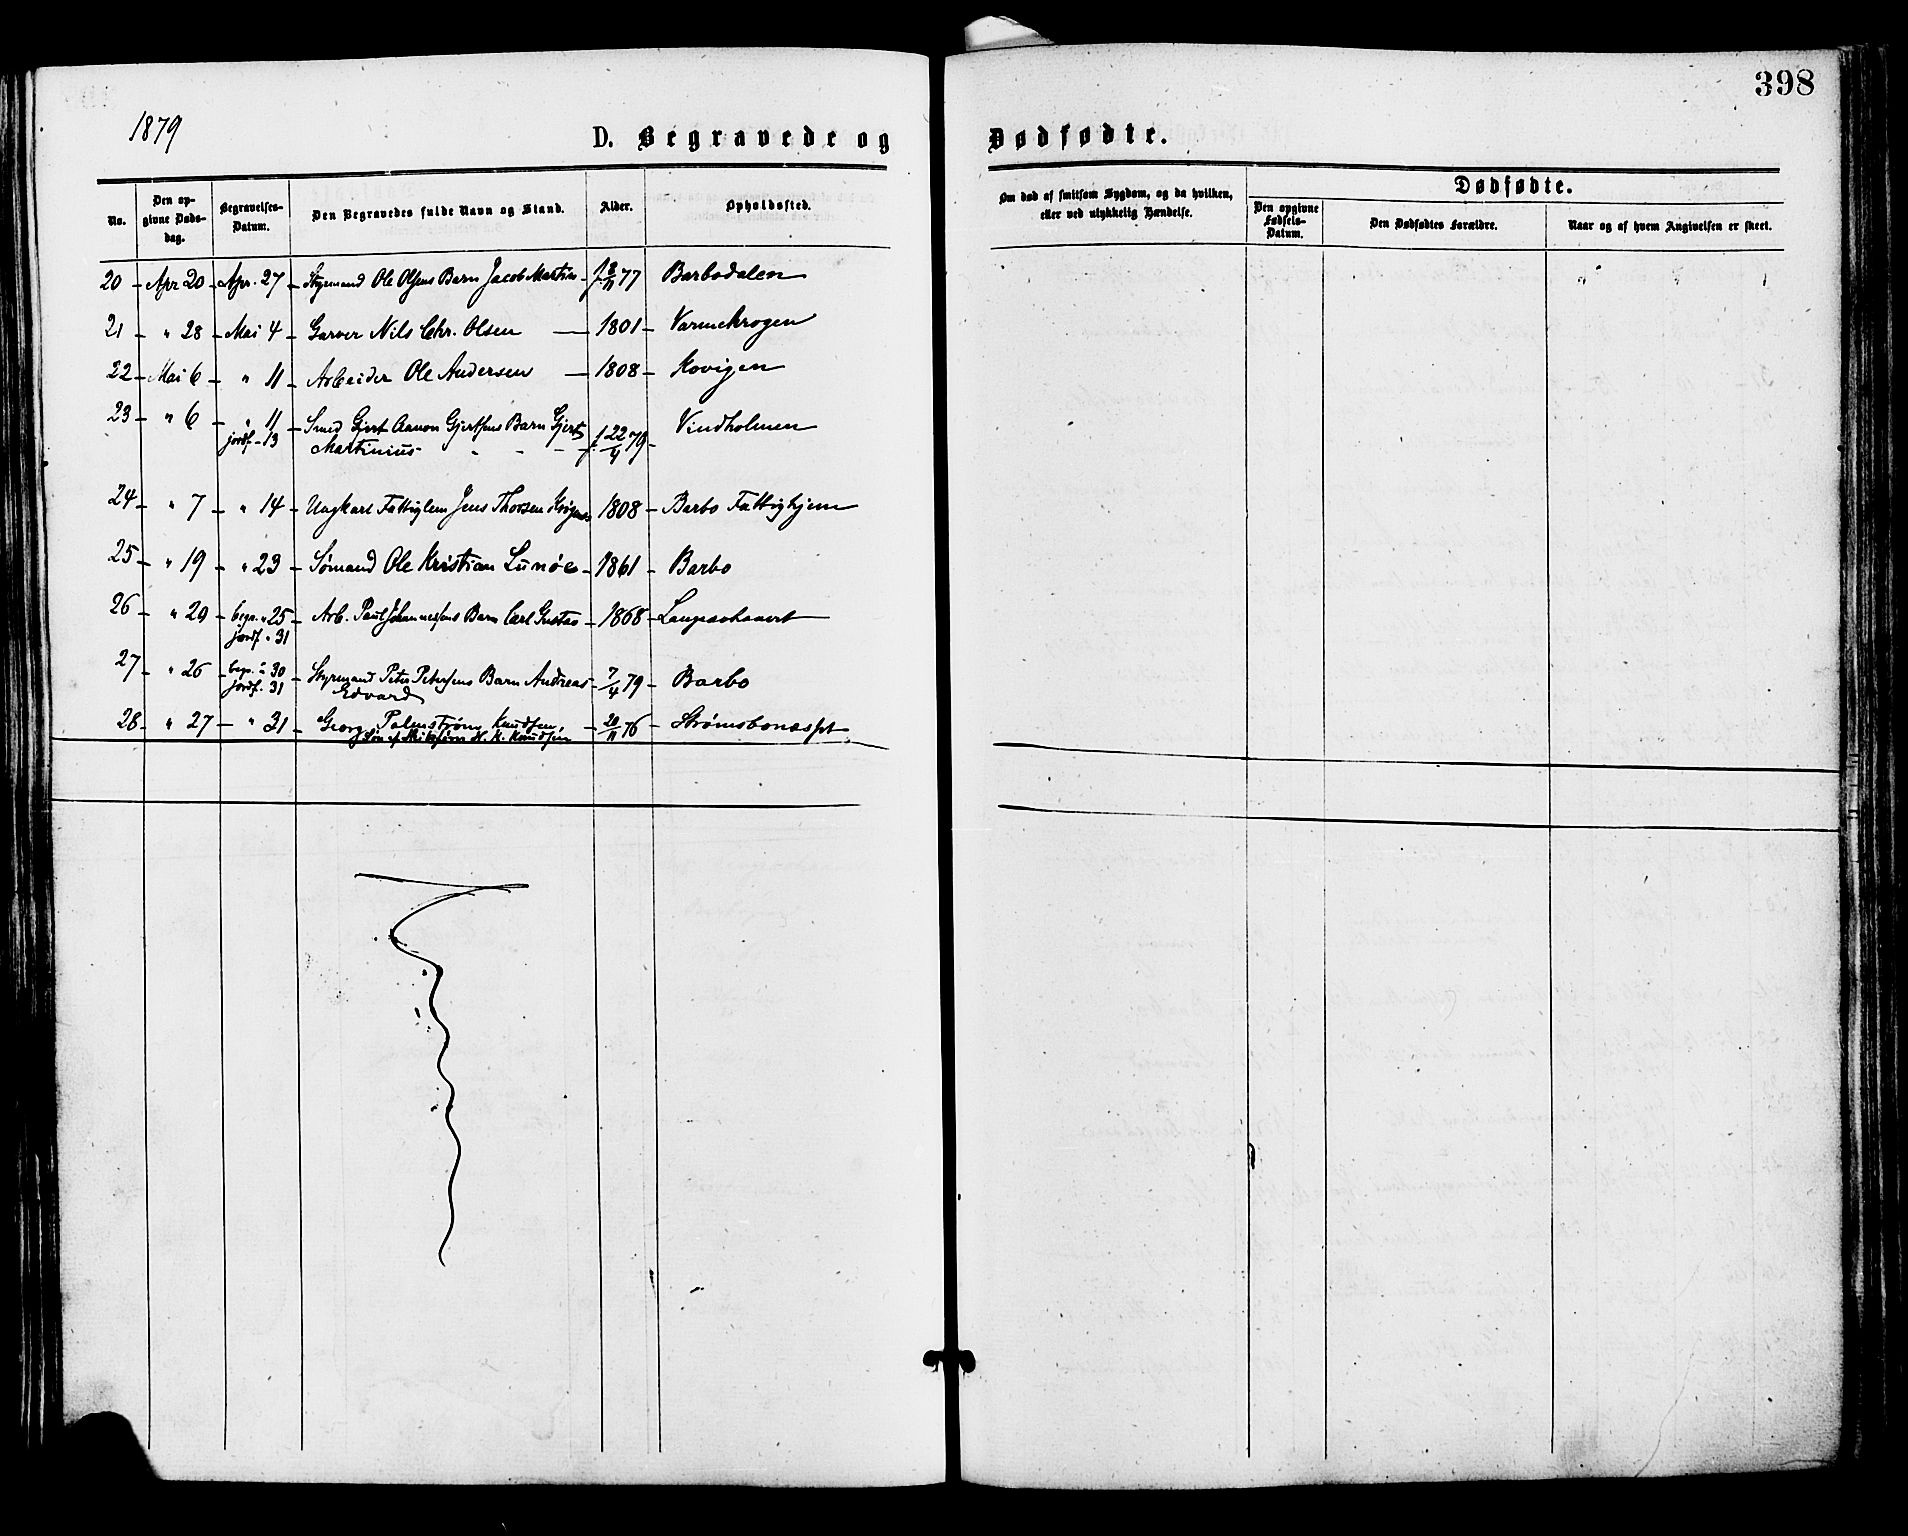 398
1879
D. Begravede og Dødfødte.
No.
Den opgivne Døds-dag.
Begravelses-Datum.
Den Begravedes fulde Navn og Stand.
Alder.
Opholdssted.
Om død af smitsom Sygdom, og da hvilken, eller ved ulykkelig Hændelse.
Dødfødte.
Den opgivne Fødsels-Datum.
Den Dødfødtes Forældre.
Naar og af hvem Angivelsen er skeet.
20 - Apr 20 - Apr. 27 - Styrmand Ole Olsens Barn Jacob Martin - f. 8/11 77 Barbodalen
21 " 28 - Mai 4 - Garver Nils Chr. Olsen - 1801 - Varmekrogen
22 - Mai 6 - " 11 - Arbeider Ole Andersen - 1808 - Kovigen
23 - " 6 - " 11 - Smed Gjert Aanon Gjertsens Barn Gjert Vindholmen
jordf. - 13 Martinius - - - f. 22/4 79 -
24 - " 7 - " 14 - Ungkarl Fattiglem Jens Thorsen 1808 - Barbo Fattighjem
25 - " 19 - " 23 - Sømand Ole Kristian Lunøe - 1861 - Barbo
26 - " 20 - begr. " 25 - Arb. Paul Johannesens Barn Carl Gustav - 1868 -
jordf. " 31
27 - " 26 - begr. " 30 - Styrmand Peter Petersens Barn Andreas - 7/4 79 - Barbo
jordf. 31 Edvard
28 - " 27 - " 31 - Georg Palmstrøm Knudsen, - 20/11 76 -
Søn af H. K. Knudsen